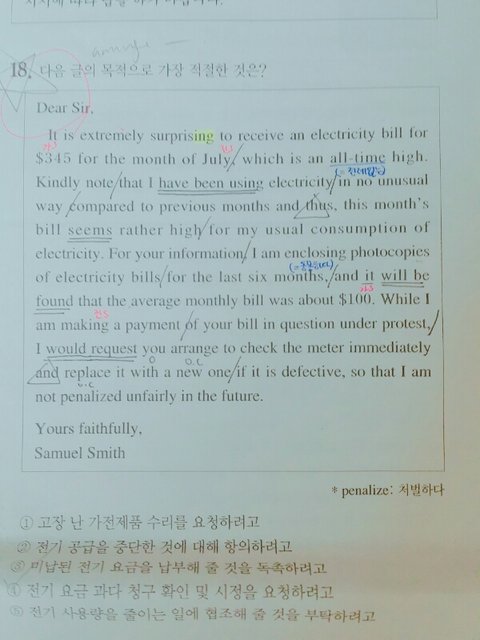 18. 다음 글의 목적으로 가장 적절한 것은?
Dear Sir,
It is extremely surprising to receive an electricity bill for
$345 for the month of July, which is an all-time high.
Kindly note that I have been using electricity in no unusual
way compared to previous months and thus, this month's
bill seems rather high for my usual consumption of
electricity. For your information, I am enclosing photocopies
of electricity bills for the last six months, and it will be
found that the average monthly bill was about $100. While I
am making a payment of your bill in question under protest,
I would request you arrange to check the meter immediately
and replace it with a new one if it is defective, so that I am
not penalized unfairly in the future.
Yours faithfully,
Samuel Smith
* penalize: 처벌하다
① 고장 난 가전제품 수리를 요청하려고
② 전기 공급을 중단한 것에 대해 항의하려고
③ 미납된 전기 요금을 납부해 줄 것을 독촉하려고
④ 전기 요금 과다 청구 확인 및 시정을 요청하려고
⑤ 전기 사용량을 줄이는 일에 협조해 줄 것을 부탁하려고